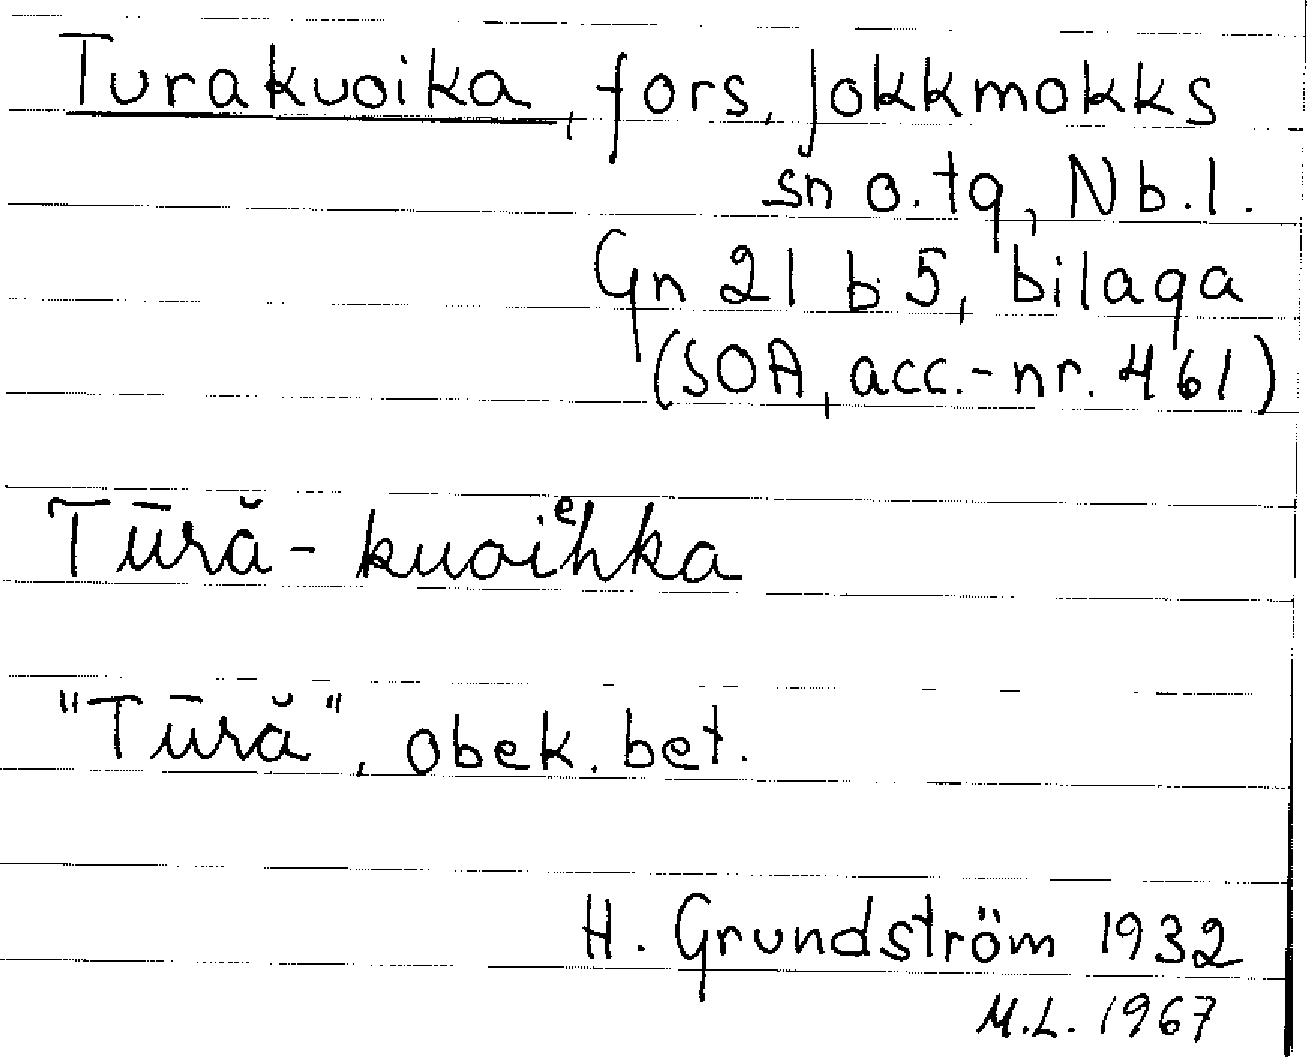 Turakuoika, fors, Jokkmokks
sn o. tg, Nb. l.
Gn 21 b 5, bilaga
(SOA, acc.-nr. 461)
Tūră-kuoiᵉhka
"Tūră", obek. bet.
H. Grundström 1932
M.L. 1967